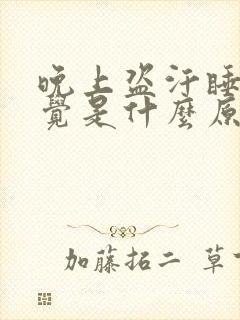 晚上盗汗睡
覺是什麼原
加藤拓二 草